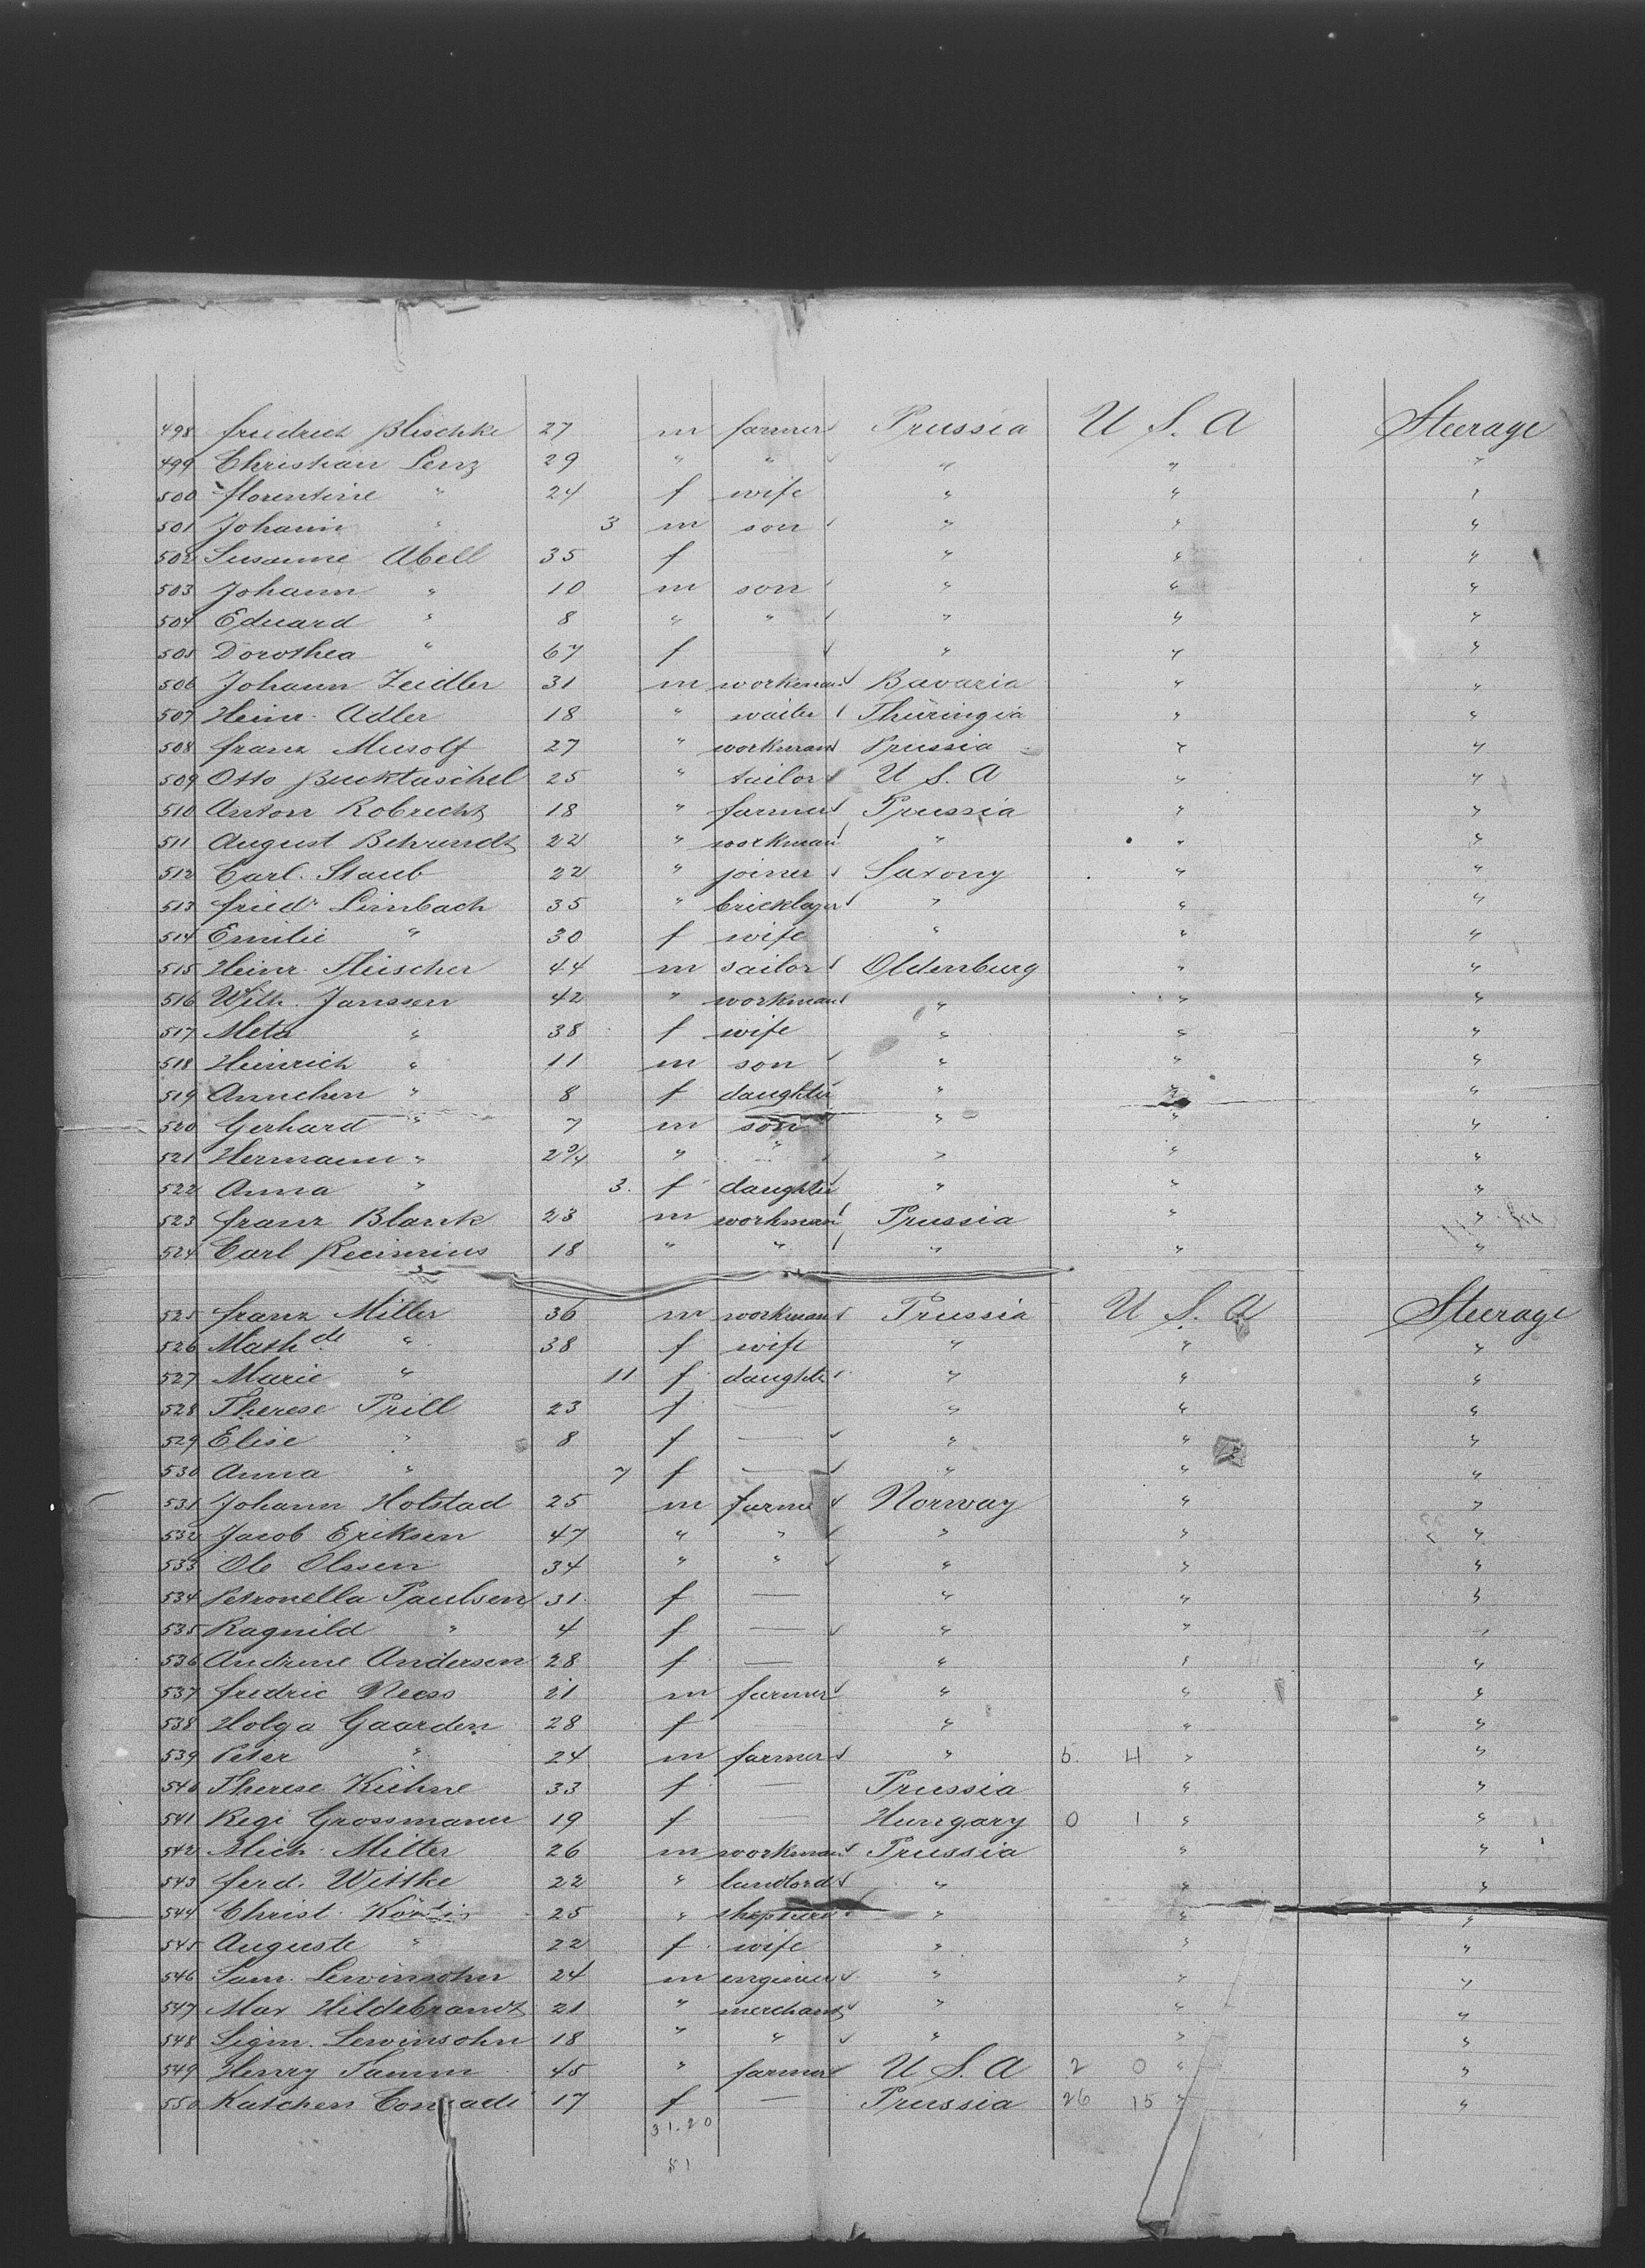 498 Friedrich Blischke 27 m farmer Prussia U S. A Steerage
499 Christian Lenz 29 " " " " "
500 Florentine " 24 f wife " " "
501 Johann " 3 m son " " "
502 Susanne Abell 35 f — " " "
503 Johann " 10 m son " " "
504 Eduard " 8 " " " " "
505 Dorothea " 67 f " " "
506 Johann Zeidler 31 m workman Bavaria " "
507 Heinr. Adler 18 " waiter Thüringia " "
508 Franz Musolf 27 " workman Prussia " "
509 Otto Bucktaschel 25 " tailor U S. A " "
510 Anton Robrecht 18 " farmer Prussia " "
511 August Behrendt 22 " workman " " "
512 Carl. Staub 22 " joiner Saxony " "
513 Friedr. Limbach 35 " bricklayer " " "
514 Emilie " 30 f wife " " "
515 Heinr. Fleischer 44 m sailor Oldenburg " "
516 Wilh. Janssen 42 " workman " " "
517 Meta " 38 f wife " " "
518 Heinrich " 11 m son " " "
519 Annchen " 8 f daughter " " "
520 Gerhard " 7 m son " " "
521 Hermann " 2 " " " " "
522 Anna " 3. f daughter " " "
523 Franz Blank 23 m workman Prussia " "
524 Carl 18 " " " " "
525 Franz Miller 36 m workman Prussia U S. A Steerage
526 Mathde " 38 f wife " " "
527 Marie " 11 f daughter " " "
528 Therese Prill 23 f — " " "
529 Elise " 8 f — " " "
530 Anna " 7 f — " " "
531 Johann Holstad 25 m farmer Norway " "
532 Jacob Eriksen 47 " " " " "
533 Ole Olssen 34 " " " " "
534 Petronella Paulsen 31 f — " " "
535 Ragnild " 4 f — " " "
536 Andrine Andersen 28 f — " " "
537 Fredric Neess 21 m farmer " " "
538 Holga Gaarden 28 f — " " "
539 Peter " 24 m farmer " 5. 4 " "
540 Therese Kühne 33 f — Prussia " "
541 Regi Grossmann 19 f — Hungary 0 1 " "
542 Mich. Milter 26 m workman Prussia " "
543 Ferd. Wittke 22 " landlord " " "
544 Christ. 25 " " " "
545 Auguste " 22 f wife " " "
546 Sam. Lewinsohn 24 m engineer " " "
547 Max Hildebrandt 21 " merchant " " "
548 Sigm. Lewinsohn 18 " " " " "
549 Henry Tamm 45 " farmer U S. A 2 0 " "
550 Katchen Conradi 17 f — Prussia 26 15 " "
31.20
51